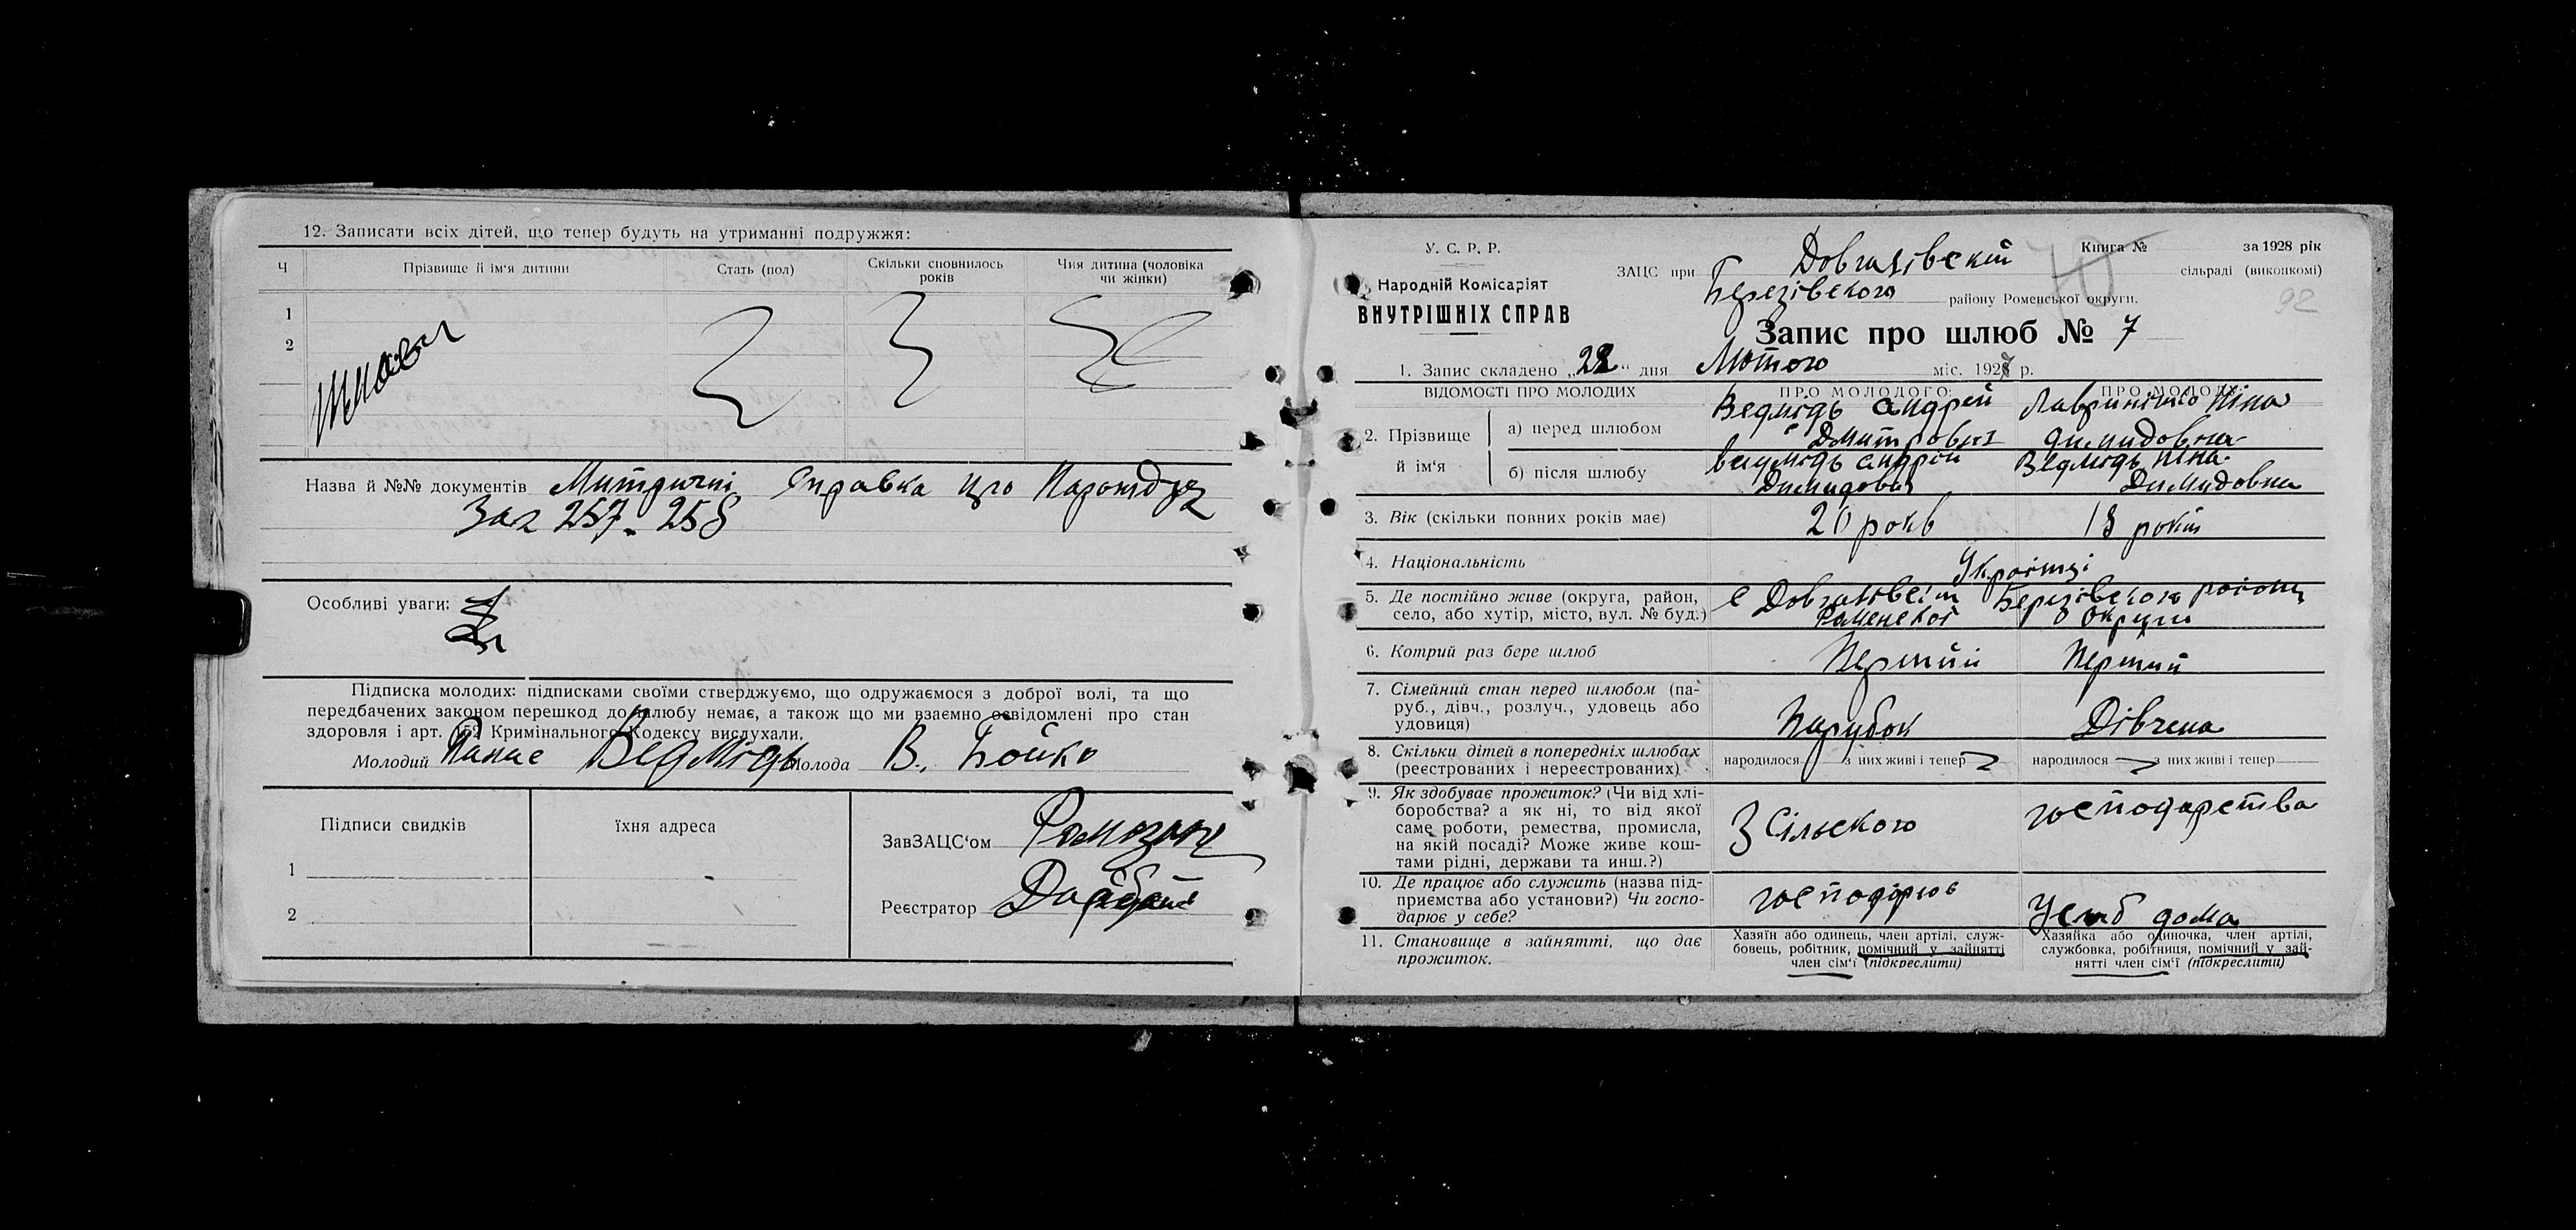 12. Записати всіх дітей, що тепер будуть на утриманні подружжя:
Ч
Прізвище й ім'я дитини
Стать (пол)
Скільки сповнилось
років
Чия дитина (чоловіка
чи жінки)
1
2
Назва й №№ документів Митричні Справка про Народжуз
Заг 257-258
Особливі уваги:
Підписка молодих: підписками своїми стверджуємо, що одружаємося з доброї волі, та що
передбачених законом перешкод до шлюбу немає, а також що ми взаємно освідомлені про стан
здоровля і арт. 159 Кримінального Кодексу вислухали.
Молодий Панас Ведмідь Молода В. Бойко
Підписи свидків
їхня адреса
ЗавЗАЦС'ом
1
Реєстратор
2
У. С. Р. Р.
Народній Комісаріят
ВНУТРІШНІХ СПРАВ
Книга № за 1928 рік
ЗАЦС при Довгалівскій сільраді (виконкомі)
Березівского району Роменської округи.
92
Запис про шлюб № 7
1. Запис складено „22" дня Лютого міс. 1928 р.
ВІДОМОСТІ ПРО МОЛОДИХ
ПРО МОЛОДОГО:
ПРО МОЛОДУ:
2. Прізвище
й ім'я
а) перед шлюбом
Ведмідь Андрей
Дмитрович
Ніна
Димидовна
б) після шлюбу
Ведмідь Андрій
Димидович
Ведмідь Ніна
Димидовна
3. Вік (скільки повних років має)
20 років
18 років
4. Національність
Українці
5. Де постійно живе (округа, район,
село, або хутір, місто, вул. № буд.)
с Довгалівсім Березівского району
Роменскої Округи
6. Котрий раз бере шлюб
Перший
Перший
7. Сімейний стан перед шлюбом (па-
руб., дівч., розлуч., удовець або
удовиця)
Парубок
Дівчена
8. Скільки дітей в попередніх шлюбах
(реєстрованих і нереєстрованих)
народилося з них живі і тепер
народилося з них живі і тепер
9. Як здобуває прожиток? (Чи від хлі-
боробства? а як ні, то від якої
саме роботи, ремества, промисла,
на якій посаді? Може живе кош-
тами рідні, держави та инш.?)
З Сільского
господарства
10. Де працює або служить (назва під-
приємства або установи?) Чи госпо-
дарює у себе?
дома
11. Становище в зайнятті, що дає
прожиток.
Хазяїн або одинець, член артілі, служ-
бовець, робітник, помічний у зайнятті
член сім'ї (підкреслити)
Хазяйка або одиночка, член артілі,
службовка, робітниця, помічний у зай-
нятті член сім'ї (підкреслити)